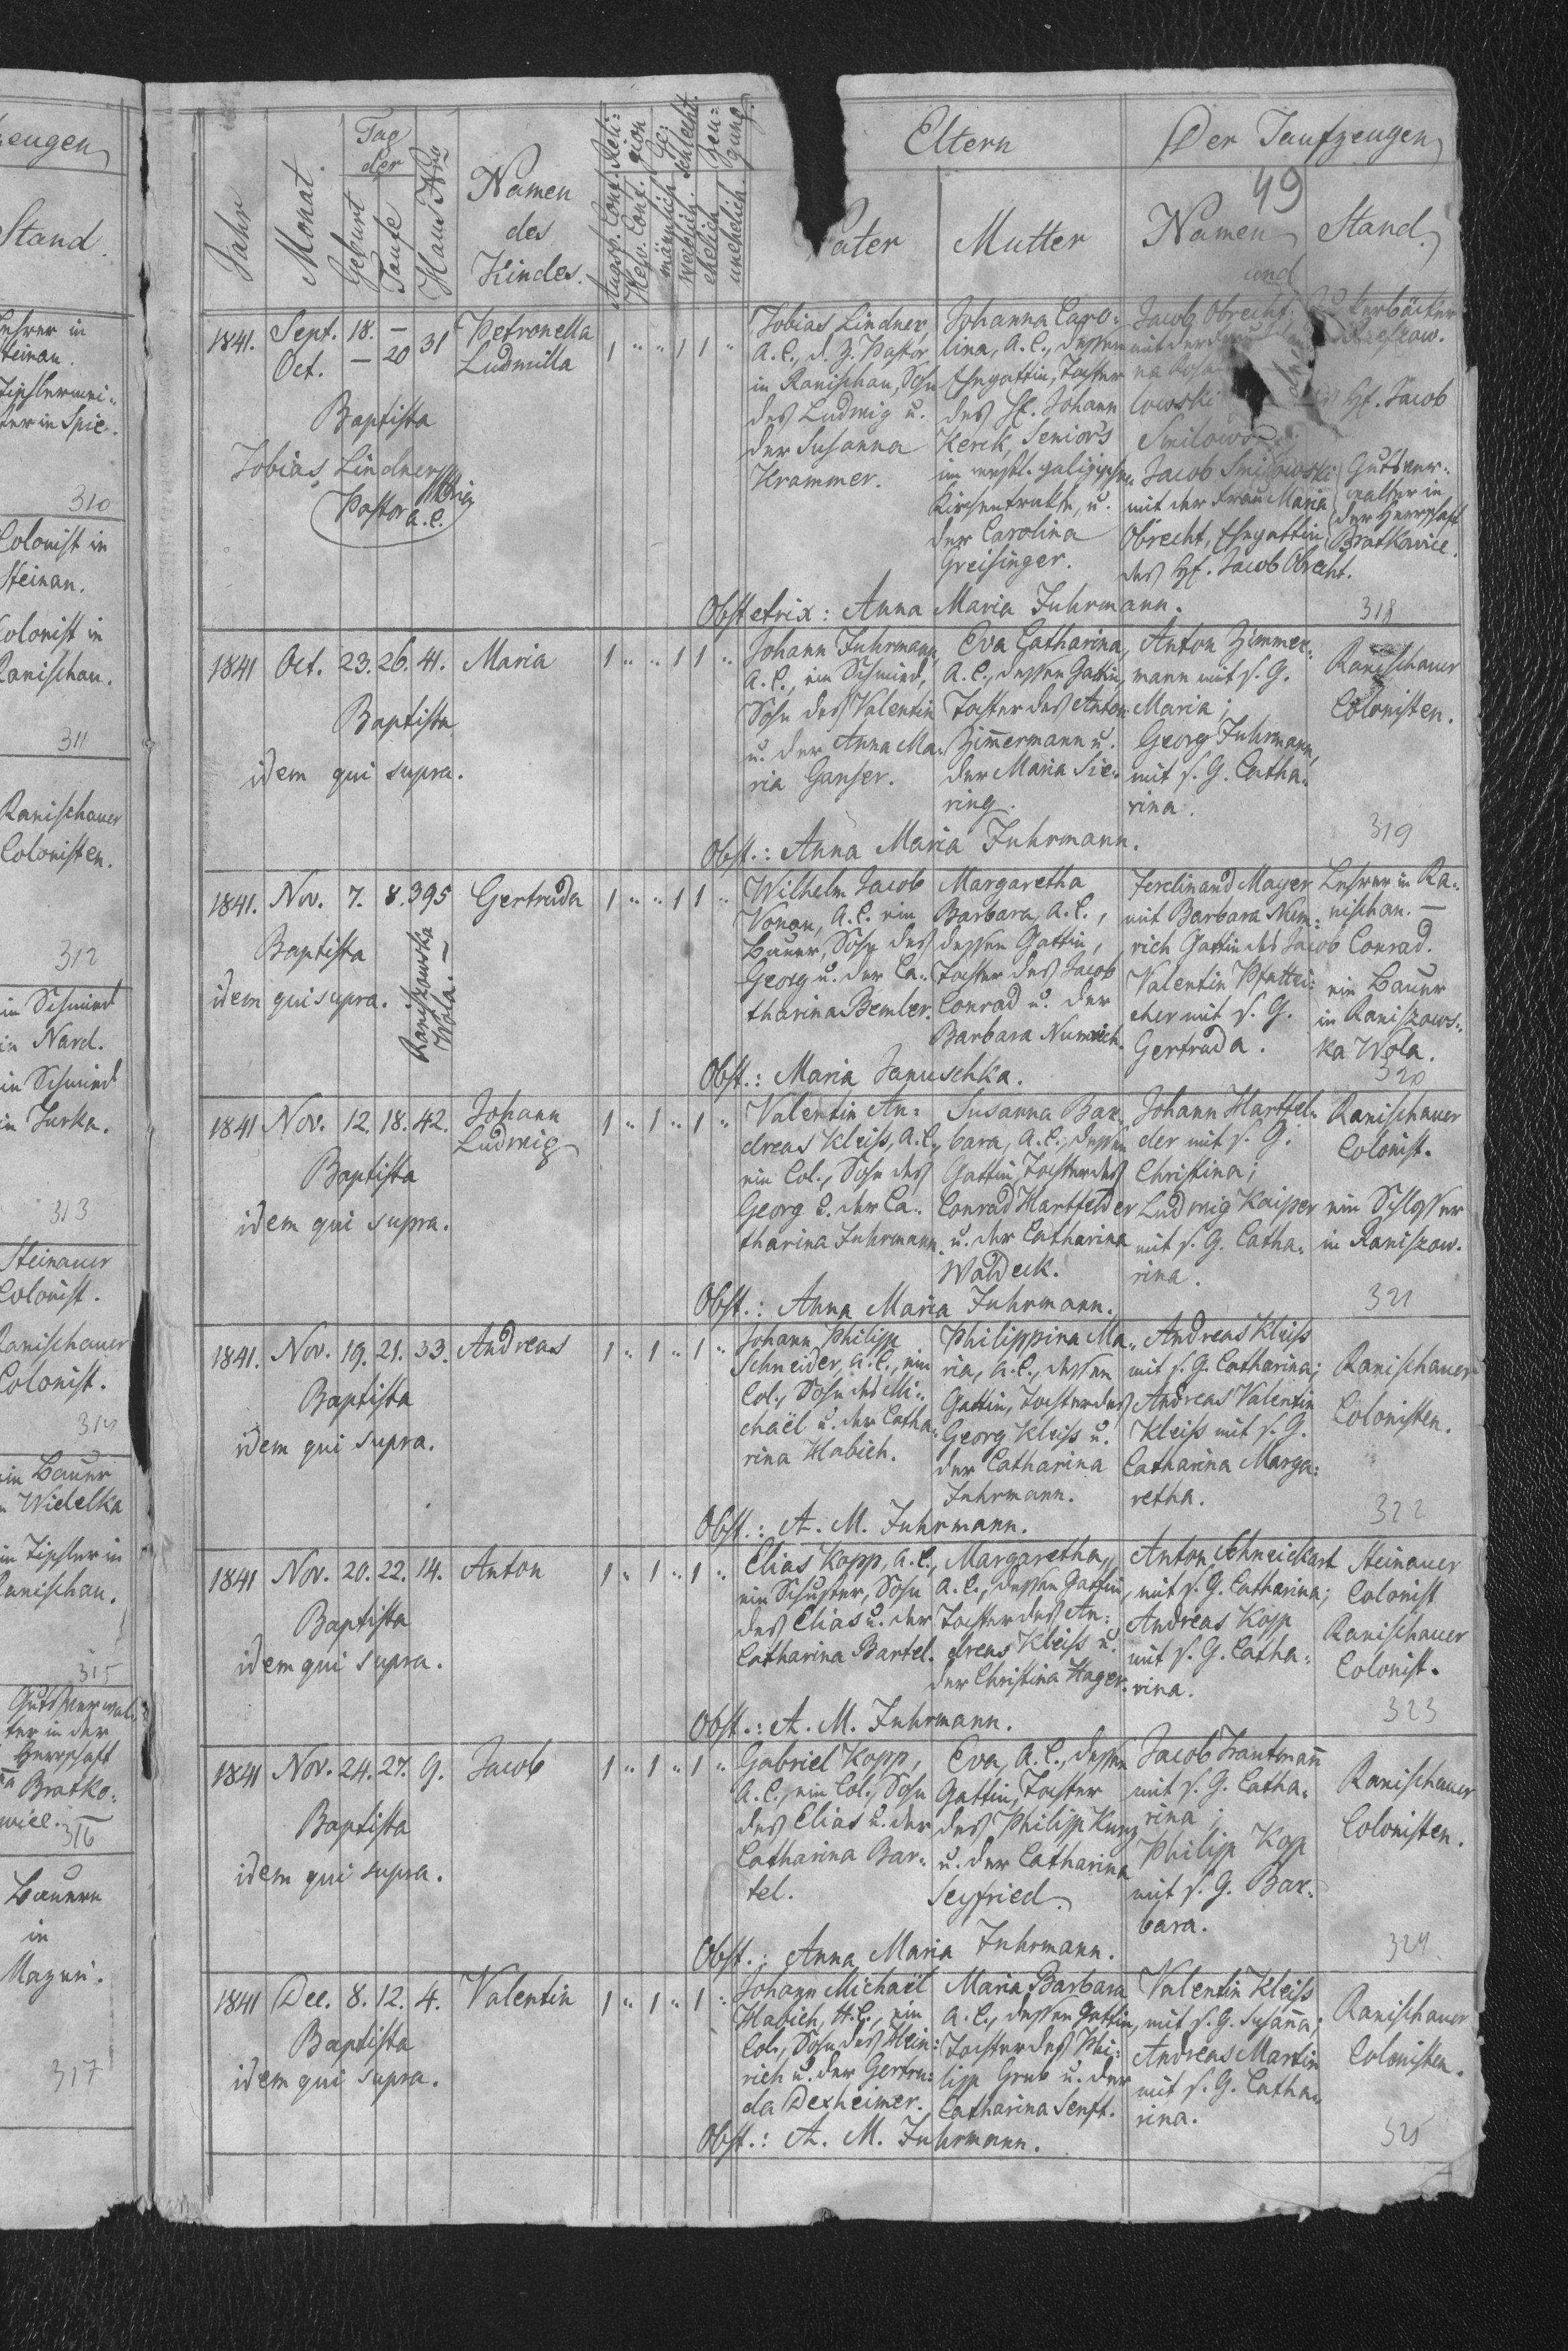 zeugen
Stand.
Lehrer in
Steinau.
Tischlermei-
ster in Spie.
310
Colonist in
Steinau.
Colonist in
Ranischau.
311
Ranischauer
Colonisten.
312
ein Schmied
in Nard.
ein Schmied
in Turka.
313
Steinauer
Colonist.
Ranischauer
Colonist.
314
ein Bauer
in Widelka
ein Tischler in
Ranischau.
315
Gutsverwal-
ter in der
Herrschaft
Bratko-
wice.
316
Bauern
in
Mazuri.
317
Jahr
Monat.
Tag
der
Geburt
Taufe
Haus Nro
Namen
des
Kindes.
Augsb. Conf.
Helv. Conf.
Reli-
gion
männlich
weiblich.
Ge-
schlecht.
ehelich
unehelich
Zeu-
gung.
Eltern
Vater
Mutter
Der Taufzeugen
49
Namen
Stand.
1841. Sept. 18. — 31 Petronella 1 " " 1 1 "
Oct. — 20 Ludmilla
Baptista
Tobias Lindner
Pastor A. C.
Tobias Lindner,
A. C., d. Z. Pastor
in Ranischau, Sohn
des Ludwig u.
der Susanna
Krammer.
Johanna Caro-
lina, A. C., dessen
Ehegattin, Tochter
des H. Johann
Kerck, Senior's
im westl. galizischen
Kirchentrakte, u.
der Carolina
Greisinger.
Jacob Obrecht
mit der
na Rosa
lowski
Smilows
Jacob Smilowski
mit der Frau Maria
Obrecht, Ehegattin
des H. Jacob Obrecht.
H. Jacob
Gutsver-
walter in
der Herrschaft
Bratkowice.
Obstetrix: Anna Maria Fuhrmann.
318
1841 Oct. 23. 26. 41. Maria 1 " " 1 1 "
Baptista
idem qui supra.
Johann Fuhrmann,
A. C., ein Schmied,
Sohn des Valentin
u. der Anna Ma-
ria Ganser.
Eva Catharina,
A. C., dessen Gattin,
Tochter des Anton
Zimmermann u.
der Maria Sie-
ring.
Anton Zimmer-
mann mit s. G.
Maria;
Georg Fuhrmann,
mit s. G. Catha-
rina.
Ranischauer
Colonisten.
Obst.: Anna Maria Fuhrmann.
319
1841. Nov. 7. 8. 395 Gertruda 1 " " 1 1 "
Baptista
idem qui supra.
Raniszowska
Wola. —
Wilhelm Jacob
Vonau, A. C. ein
Bauer, Sohn des
Georg u. der Ca-
tharina Bemler.
Margaretha
Barbara, A. C.,
dessen Gattin,
Tochter des Jacob
Conrad u. der
Barbara Numrich.
Ferdinand Mayer
mit Barbara Num-
rich Gattin des Jacob Conrad.
Valentin Pfattei-
cher mit s. G.
Gertruda.
Lehrer in Ra-
nischau. —
ein Bauer
in Raniszows-
ka Wola.
Obst.: Maria Januschka.
320
1841 Nov. 12. 18. 42. Johann 1 " 1 " 1 "
Ludwig
Baptista
idem qui supra.
Valentin An-
dreas Kleiss, A. C.,
ein Col., Sohn des
Georg u. der Ca-
tharina Fuhrmann.
Susanna Bar-
bara, A. C., dessen
Gattin, Tochter des
Conrad Hartfelder
u. der Catharina
Waldeck.
Johann Hartfel-
der mit s. G.
Christina;
Ludwig Kaiper
mit s. G. Catha-
rina.
Ranischauer
Colonist.
ein Schlosser
in Raniszow.
Obst.: Anna Maria Fuhrmann.
321
1841. Nov. 19. 21. 33. Andreas 1 " 1 " 1 "
Baptista
idem qui supra.
Johann Philipp
Schneider, A. C., ein
Col., Sohn des Mi-
chaël u. der Catha-
rina Habich.
Philippina Ma-
ria, A. C., dessen
Gattin, Tochter des
Georg Kleiss u.
der Catharina
Fuhrmann.
Andreas Kleiss
mit s. G. Catharina;
Andreas Valentin
Kleiss mit s. G.
Catharina Marga-
retha.
Ranischauer
Colonisten.
Obst.: A. M. Fuhrmann.
322
1841 Nov. 20. 22. 14. Anton 1 " 1 " 1 "
Baptista
idem qui supra.
Elias Kopp, A. C.,
ein Schuster, Sohn
des Elias u. der
Catharina Bartel.
Margaretha,
A. C., dessen Gattin,
Tochter des An-
dreas Kleiss u.
der Christina Hager.
Anton Schneickart
mit s. G. Catharina;
Andreas Kopp
mit s. G. Catha-
rina.
Steinauer
Colonist
Ranischauer
Colonist.
Obst.: A. M. Fuhrmann.
323
1841 Nov. 24. 27. 9. Jacob 1 " 1 " 1 "
Baptista
idem qui supra.
Gabriel Kopp,
A. C., ein Col., Sohn
des Elias u. der
Catharina Bar-
tel.
Eva, A. C., dessen
Gattin, Tochter
des Philipp Kunz
u. der Catharina
Seyfried.
Jacob Trautmann̄
mit s. G. Catha-
rina;
Philipp Kopp
mit s. G. Bar-
bara.
Ranischauer
Colonisten.
Obst.: Anna Maria Fuhrmann.
324
1841 Dec. 8. 12. 4. Valentin 1 " 1 " 1 "
Baptista
idem qui supra.
Johann Michaël
Habich, H. C., ein
Col., Sohn des Hein-
rich u. der Gertru-
da Dexheimer.
Maria Barbara
A. C., dessen Gattin,
Tochter des Phi-
lipp Grub u. der
Catharina Senft.
Valentin Kleiss
mit s. G. Susan̄a;
Andreas Martin
mit s. G. Catha-
rina.
Ranischauer
Colonisten.
Obst.: A. M. Fuhrmann.
325